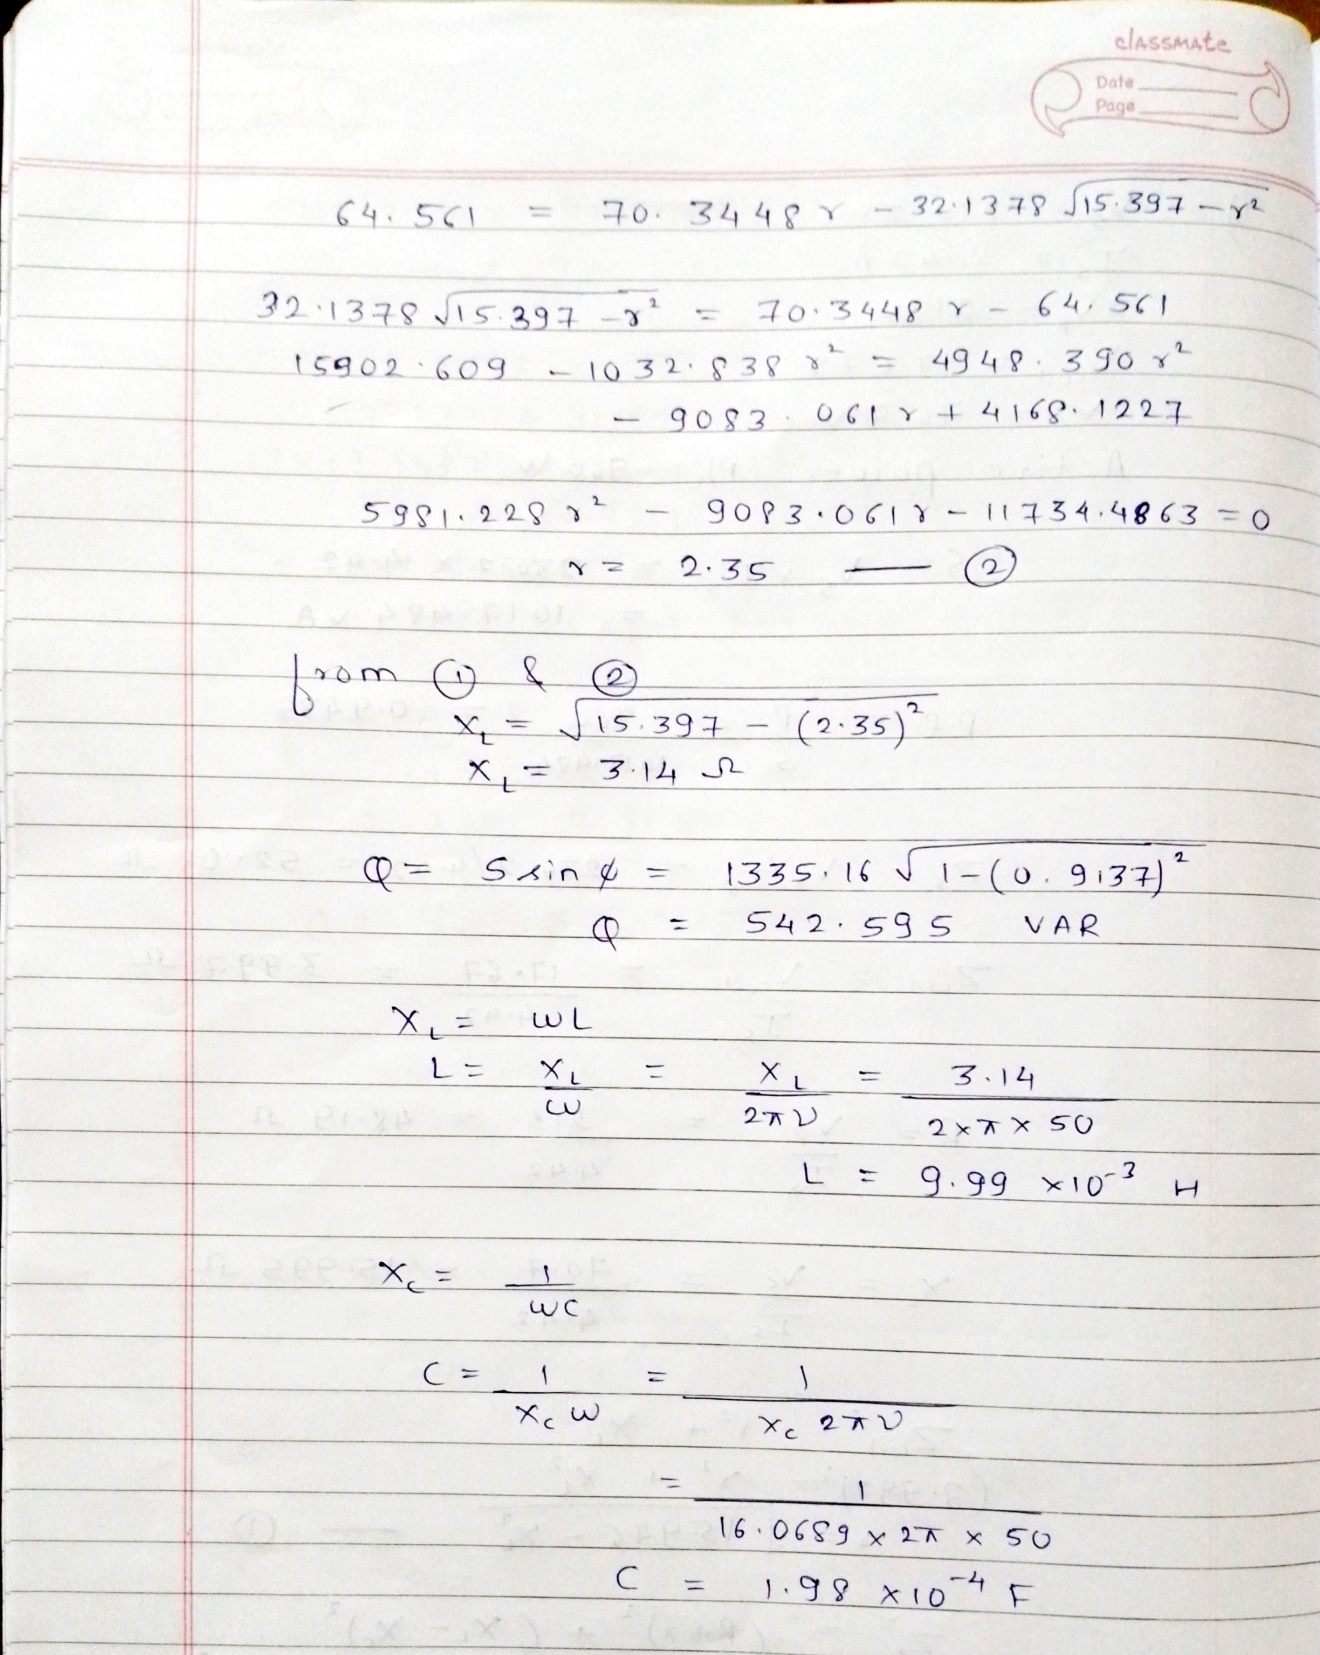 classmate
Date
Page
64.561 = 70.3448 r - 32.1378 √15.397 - r²
32.1378 √15.397 - r² = 70.3448 r - 64.561
15902.609 - 1032.838 r² = 4948.390 r²
- 9083.061 r + 4168.1227
5981.228 r² - 9083.061 r - 11734.4863 = 0
r = 2.35 — ②
from ① & ②
X_L = √15.397 - (2.35)²
X_L = 3.14 Ω
Q = S sin ϕ = 1335.16 √1-(0.9137)²
Q = 542.595 VAR
X_L = ωL
L = X_L/ω = X_L/2πν = 3.14/2×π×50
L = 9.99 ×10⁻³ H
X_C = 1/ωC
C = 1/X_C ω = 1/X_C 2πν
= 1/16.0689 × 2π × 50
C = 1.98 ×10⁻⁴ F